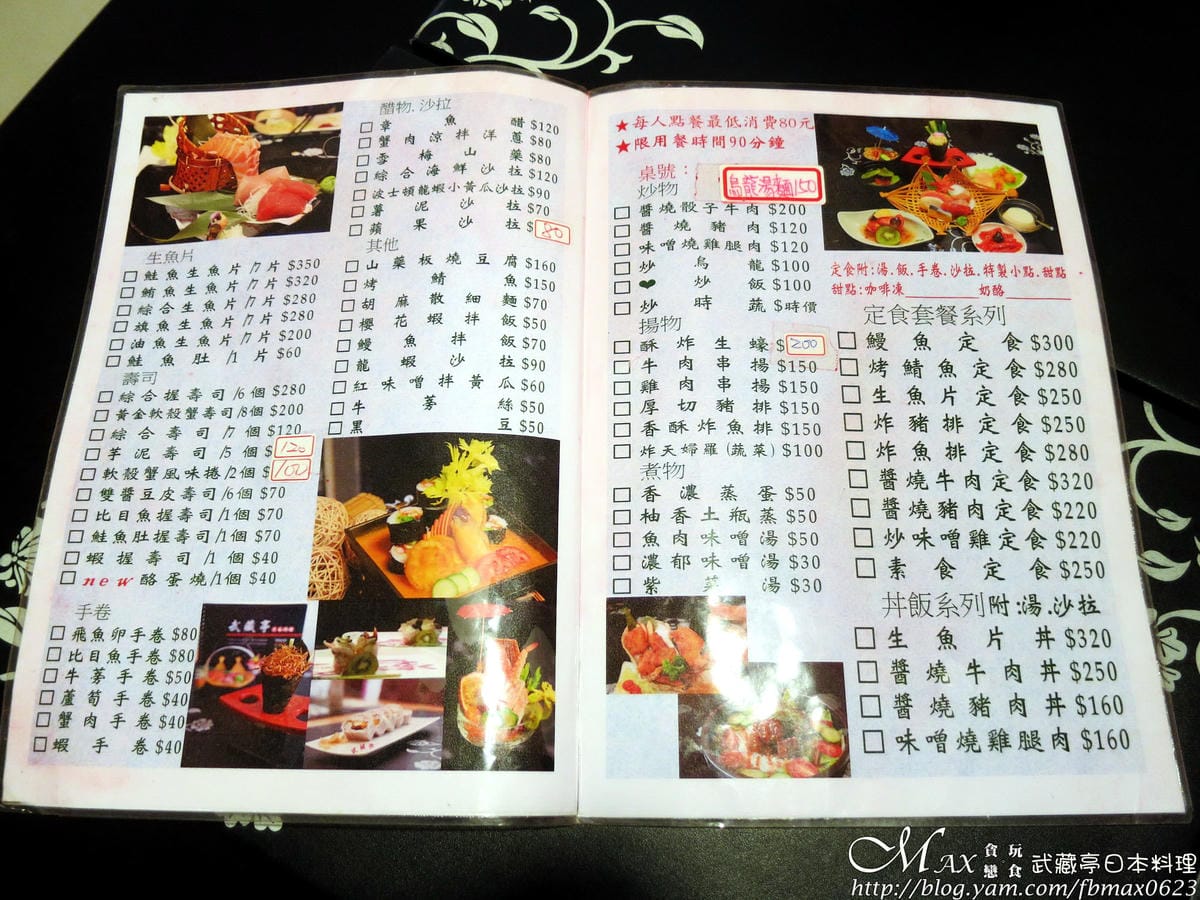 生魚片
鮭魚生魚片/7片 $350
鮪魚生魚片/7片 $320
綜合生魚片/7片 $280
旗魚生魚片/7片 $280
油魚生魚片/7片 $200
鮭魚肚/1片 $60
壽司
綜合握壽司/6個 $280
黃金軟殼蟹壽司/8個 $200
綜合壽司/7個 $120
芋泥壽司/5個 $120
軟殼蟹風味捲/2個 $100
雙醬豆皮壽司/6個 $70
比目魚握壽司/1個 $70
鮭魚肚握壽司/1個 $70
蝦握壽司/1個 $40
new 酪蛋燒/1個 $40
手卷
飛魚卵手卷 $80
比目魚手卷 $80
牛蒡手卷 $50
蘆筍手卷 $40
蟹肉手卷 $40
蝦手卷 $40
武藏亭
醋物.沙拉
章魚醋 $120
蟹肉涼拌洋蔥 $80
雪梅山藥 $80
綜合海鮮沙拉 $120
波士頓龍蝦小黃瓜沙拉 $90
薯泥沙拉 $70
蘋果沙拉 $80
其他
山藥板燒豆腐 $160
烤魚 $150
胡麻散細麵 $70
櫻花蝦拌飯 $50
鰻魚拌飯 $70
龍蝦沙拉 $90
紅味噌拌黃瓜 $60
牛蒡絲 $50
黑豆 $50
★每人點餐最低消費80元
★限用餐時間90分鐘
桌號：
烏龍湯麵150
炒物
醬燒骰子牛肉 $200
醬燒豬肉 $120
味噌燒雞腿肉 $120
炒烏龍 $100
炒飯 $100
炒時蔬 $時價
揚物
酥炸生蠔 $200
牛肉串揚 $150
雞肉串揚 $150
厚切豬排 $150
香酥炸魚排 $150
炸天婦羅(蔬菜) $100
煮物
香濃蒸蛋 $50
柚香土瓶蒸 $50
魚肉味噌湯 $50
濃郁味噌湯 $30
紫菜湯 $30
定食附:湯.飯.手卷.沙拉.特製小點.甜點
甜點:咖啡凍______ 奶酪______
定食套餐系列
鰻魚定食 $300
烤鯖魚定食 $280
生魚片定食 $250
炸豬排定食 $250
炸魚排定食 $280
醬燒牛肉定食 $320
醬燒豬肉定食 $220
炒味噌雞定食 $220
素食定食 $250
丼飯系列附:湯.沙拉
生魚片丼 $320
醬燒牛肉丼 $250
醬燒豬肉丼 $160
味噌燒雞腿肉 $160
MAX 貪戀玩食 武藏亭日本料理
http://blog.yam.com/fbmax0623